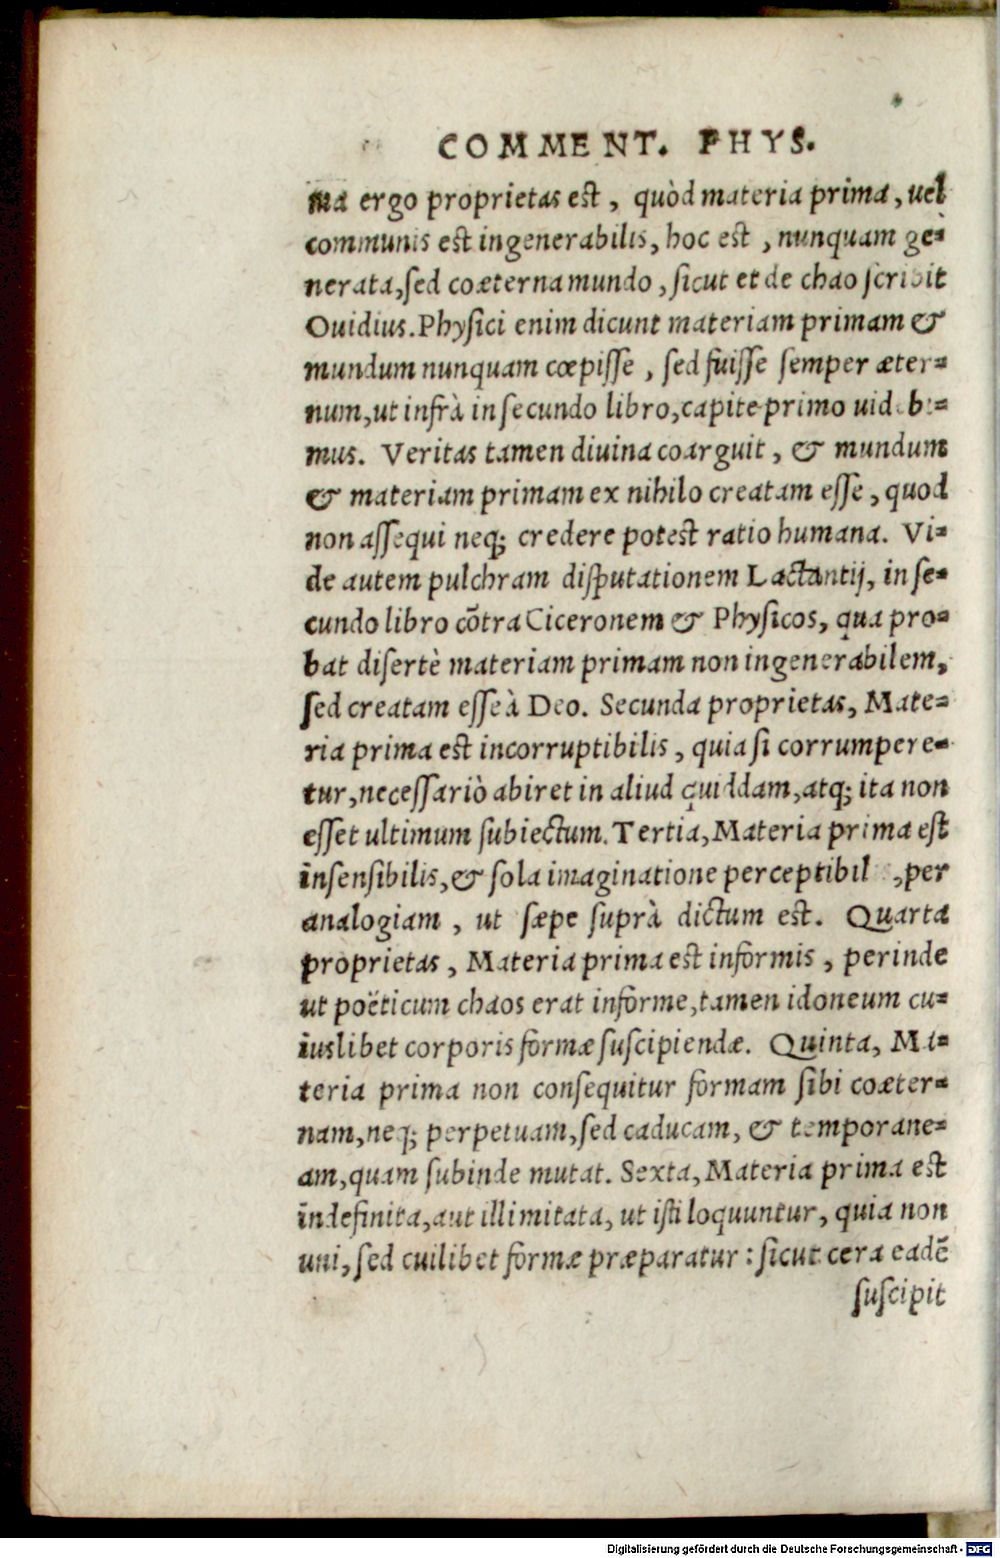 COMMENT. PHYS.
ma ergo proprietas est, quòd materia prima, uel
communis est ingenerabilis, hoc est, nunquam ge-
nerata, sed coæterna mundo, sicut et de chao scribit
Ouidius. Physici enim dicunt materiam primam &
mundum nunquam cœpisse, sed fuisse semper æter-
num, ut infrà in secundo libro, capite primo uidebi-
mus. Veritas tamen diuina coarguit, & mundum
& materiam primam ex nihilo creatam esse, quod
non assequi neq; credere potest ratio humana. Vi-
de autem pulchram disputationem Lactantij, in se-
cundo libro cõtra Ciceronem & Physicos, qua pro-
bat disertè materiam primam non ingenerabilem,
sed creatam esse à Deo. Secunda proprietas, Mate-
ria prima est incorruptibilis, quia si corrumpere-
tur, necessariò abiret in aliud quiddam, atq; ita non
esset ultimum subiectum. Tertia, Materia prima est
insensibilis, & sola imaginatione perceptibil , per
analogiam, ut sæpe suprà dictum est. Quarta
proprietas, Materia prima est informis, perinde
ut poëticum chaos erat informe, tamen idoneum cu-
iuslibet corporis formæ suscipiendæ. Quinta, Ma-
teria prima non consequitur formam sibi coæter-
nam, neq; perpetuam, sed caducam, & temporane-
am, quam subinde mutat. Sexta, Materia prima est
indefinita, aut illimitata, ut isti loquuntur, quia non
uni, sed cuilibet formæ præparatur: sicut cera eadẽ
suscipit
Digitalisierung gefördert durch die Deutsche Forschungsgemeinschaft - DFG